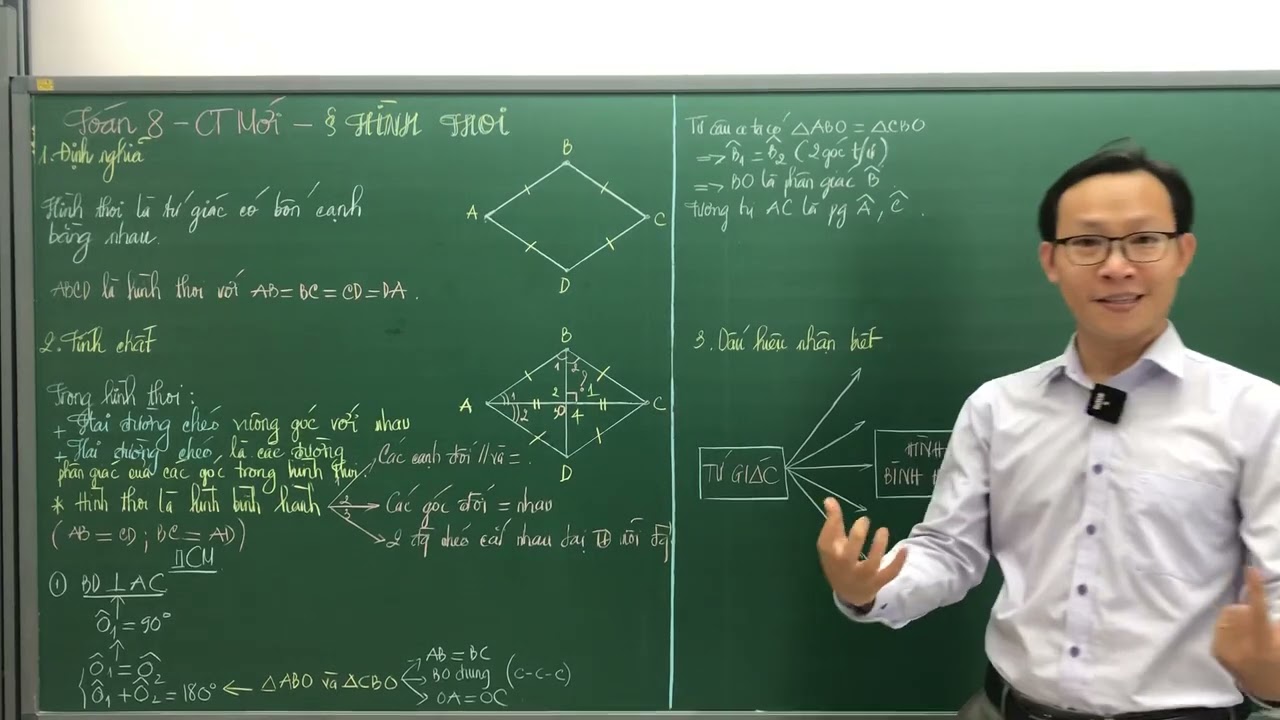 Toán 8 – CT Mới – § HÌNH THOI
1. Định nghĩa
Hình thoi là tứ giác có bốn cạnh
bằng nhau.
ABCD là hình thoi với AB = BC = CD = DA.
B
A
C
D
2. Tính chất
Trong hình thoi:
+ Hai đường chéo vuông góc với nhau
+ Hai đường chéo là các đường
phân giác của các góc trong hình thoi.
* Hình thoi là hình bình hành
(AB = CD; BC = AD)
Các cạnh đối // và =.
2
Các góc đối = nhau
3
2 đg chéo cắt nhau tại TĐ mỗi đg
B
1 2
A
1
2
2 1
3 O 4
C
D
CM
① BD ⊥ AC
Ô₁ = 90°
Ô₁ = Ô₂
Ô₁ + Ô₂ = 180° ← △ABO và △CBO
AB = BC
BO chung (c-c-c)
OA = OC
Từ câu a ta có △ABO = △CBO
=> B̂₁ = B̂₂ (2 góc t/ứ)
=> BO là phân giác B̂.
Tương tự AC là pg Â, Ĉ.
3. Dấu hiệu nhận biết
TỨ GIÁC
HÌNH
BÌNH